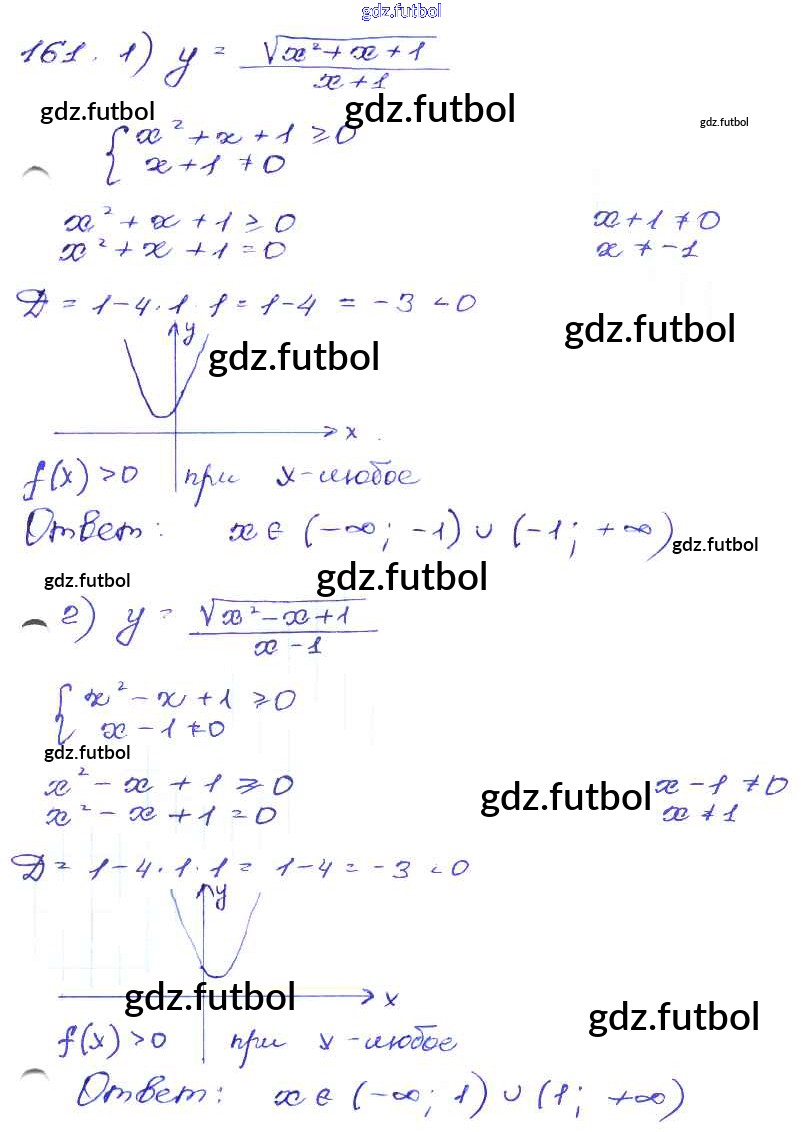 gdz.futbol
161. 1) y = √(x² + x + 1) / (x + 1)
gdz.futbol gdz.futbol gdz.futbol
{ x² + x + 1 ≥ 0
x + 1 ≠ 0
x² + x + 1 ≥ 0 x + 1 ≠ 0
x² + x + 1 = 0 x ≠ -1
D = 1 - 4 · 1 · 1 = 1 - 4 = -3 < 0
gdz.futbol
y gdz.futbol
x
f(x) > 0 при x - любое
Ответ: x ∈ (-∞; -1) ∪ (-1; +∞)
gdz.futbol
gdz.futbol gdz.futbol
2) y = √(x² - x + 1) / (x - 1)
{ x² - x + 1 ≥ 0
x - 1 ≠ 0
gdz.futbol
x² - x + 1 ≥ 0 gdz.futbol x - 1 ≠ 0
x² - x + 1 = 0 x ≠ 1
D = 1 - 4 · 1 · 1 = 1 - 4 = -3 < 0
y
gdz.futbol x
gdz.futbol
f(x) > 0 при x - любое
Ответ: x ∈ (-∞; 1) ∪ (1; +∞)